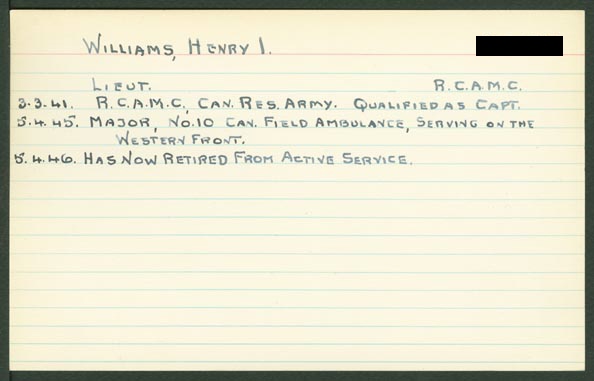 WILLIAMS, HENRY I.
LIEUT. R.C.A.M.C.
3.3.41. R.C.A.M.C, CAN. RES. ARMY. QUALIFIED AS CAPT.
5.4.45. MAJOR, NO.10 CAN. FIELD AMBULANCE, SERVING ON THE
WESTERN FRONT.
5.4.46. HAS NOW RETIRED FROM ACTIVE SERVICE.